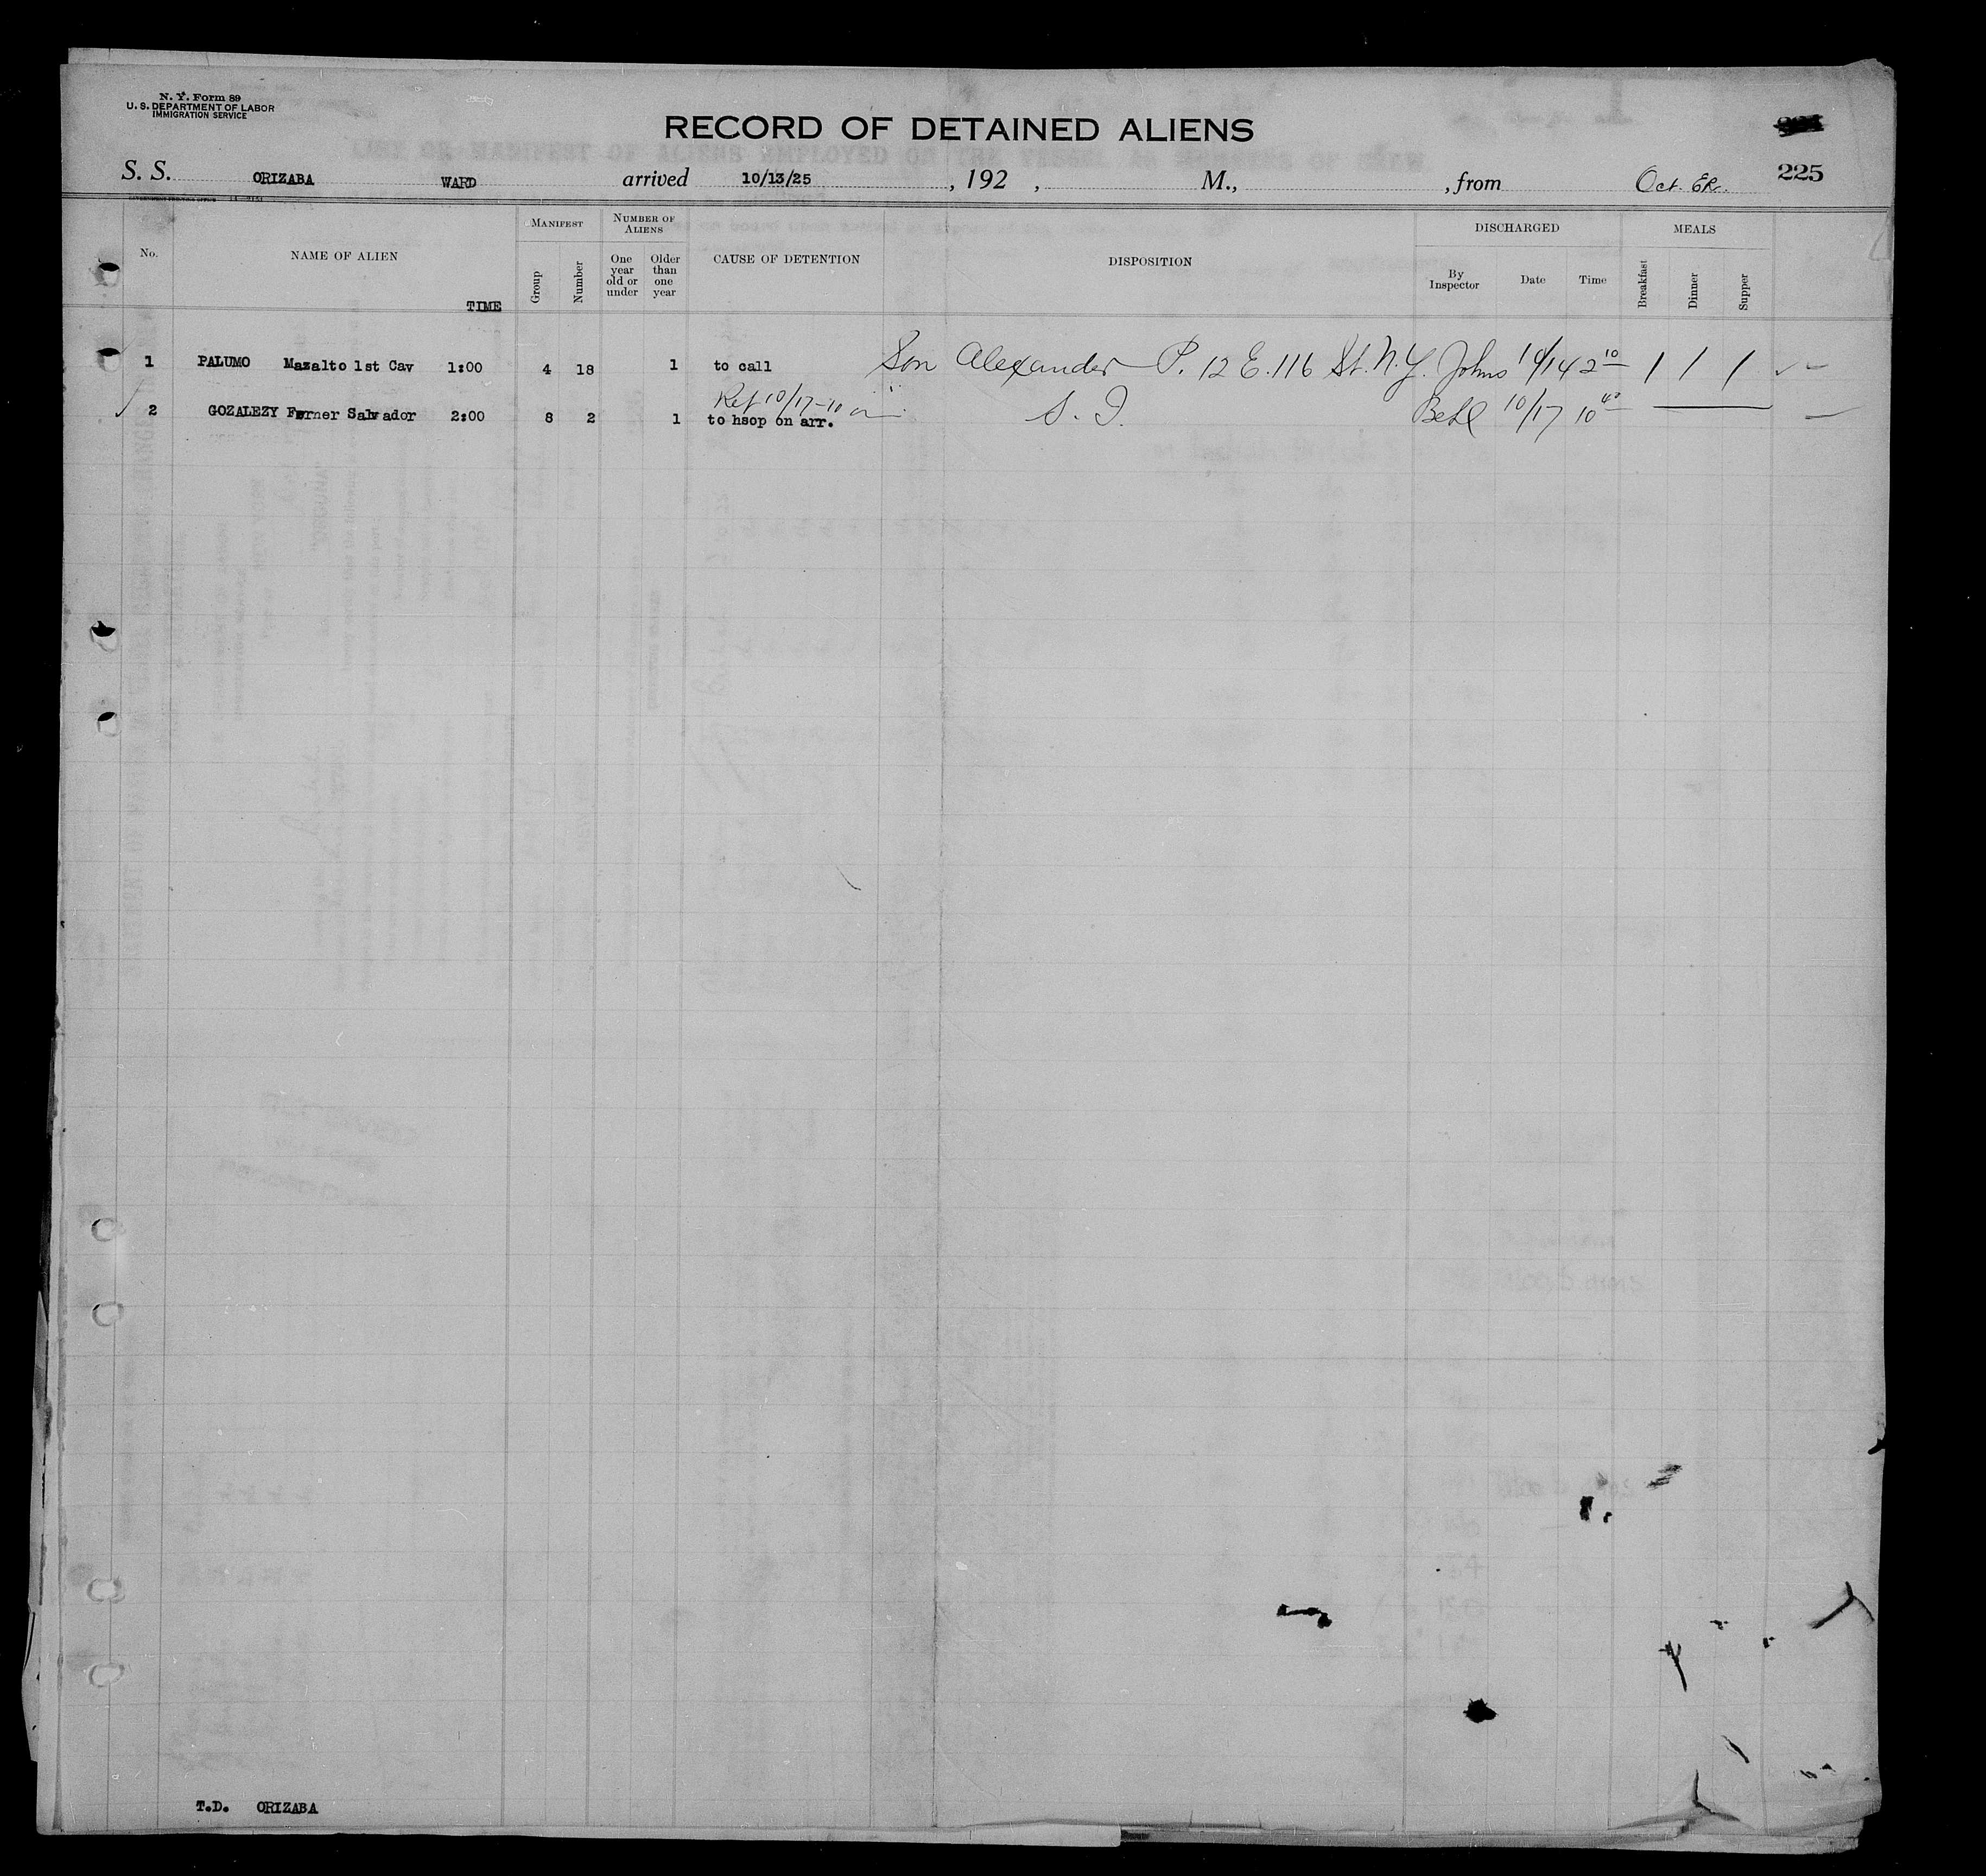 N. Y. Form 89
U. S. DEPARTMENT OF LABOR
IMMIGRATION SERVICE
RECORD OF DETAINED ALIENS
225
S. S. ORIZABA WARD arrived 10/13/25, 192 , M., , from Oct.
No. NAME OF ALIEN TIME MANIFEST Group Number NUMBER OF ALIENS One year old or under Older than one year CAUSE OF DETENTION DISPOSITION DISCHARGED By Inspector Date Time MEALS Breakfast Dinner Supper
1 PALUMO Mazalto 1st Cav 1:00 4 18 1 to call Son Alexander P. 12 E. 116 St. N.Y. Johns 10/14 2 10 1 1 1
Ref 10/17-10
2 GOZALEZY Ferner Salvador 2:00 8 2 1 to hsop on arr. S. I. 10/17 10 40
T.D. ORIZABA